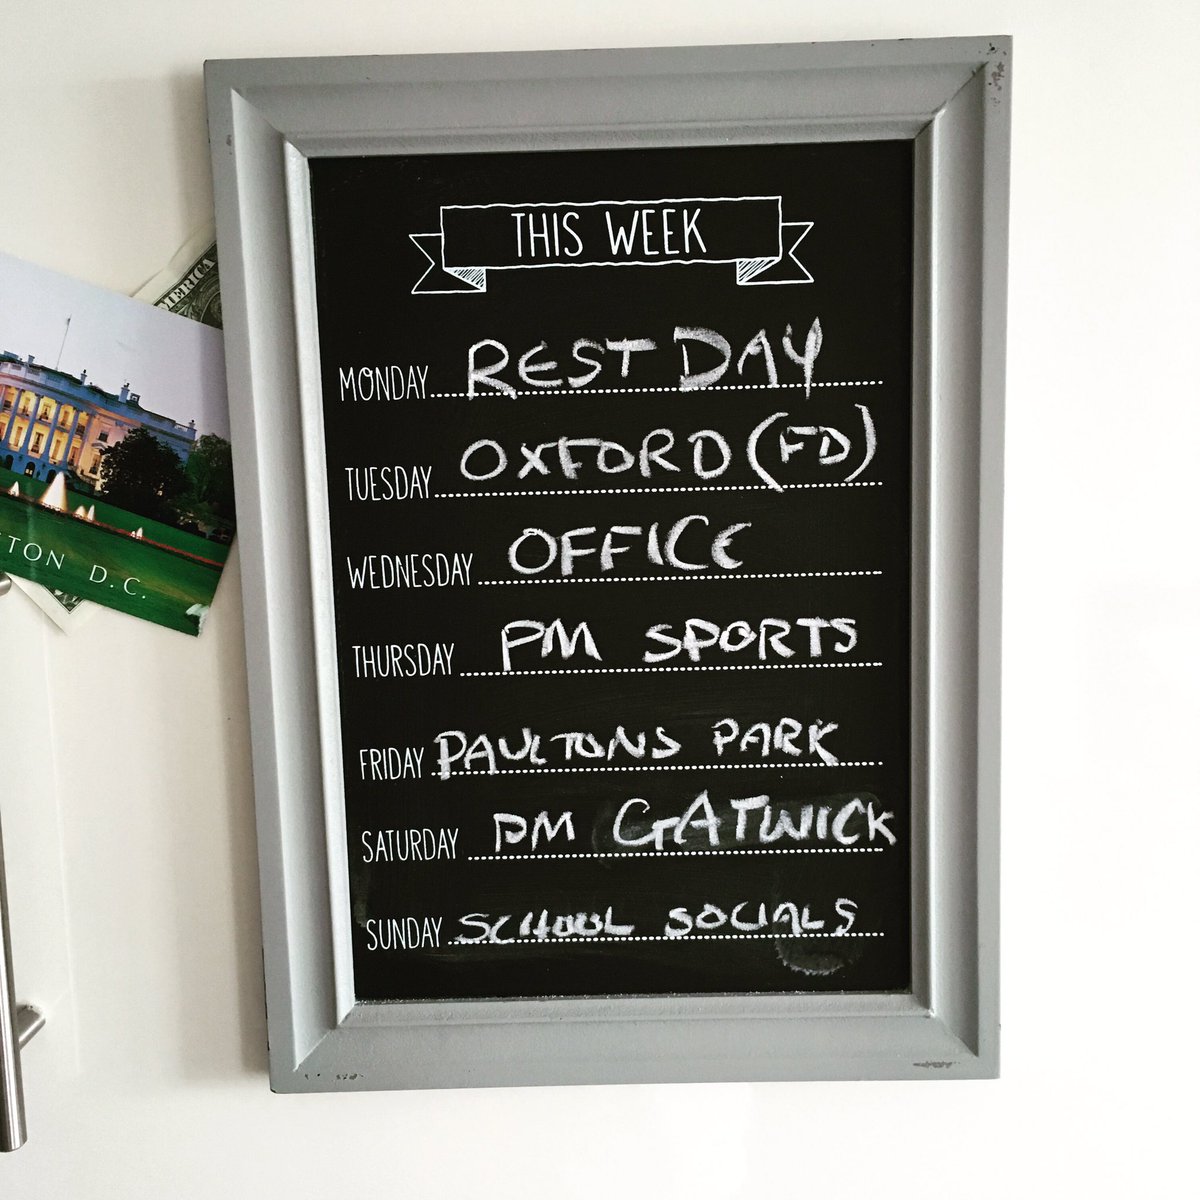 THIS WEEK
MONDAY REST DAY
TUESDAY OXFORD (FD)
WEDNESDAY OFFICE
THURSDAY PM SPORTS
FRIDAY PAULTONS PARK
SATURDAY PM GATWICK
SUNDAY SCHOOL SOCIALS
AMERICA
TON D.C.